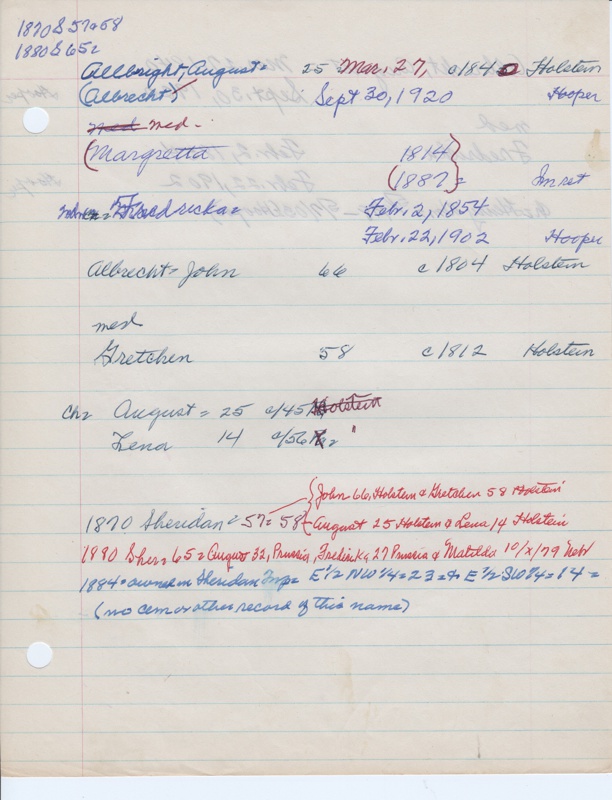 1870 S 57=58
1880 S 65=
Allbright, August= 25 Mar. 27, c1840 Holstein
(Albrecht) Sept 30, 1920 Hooper
med med.
(Margretta 1814
(1887 = Im ret
Fredericka= Febr. 2, 1854
Febr. 22, 1902 Hooper
Albrecht= John 66 c1804 Holstein
med
Gretchen 58 c1812 Holstein
Ch= August= 25 c/45 Holstein
Lena 14 c/56 "
John 66, Holstein & Gretchen 58 Holstein
1870 Sheridan= 57=58 August 25 Holstein & Lena 14 Holstein
1880 Sher=65= August 32, Prussia, Fredericka, 27 Prussia & Matilda 10/x/79 Nebr
1884= owned in Sheridan Twp= E½ NW¼=23=& E½ SW¼=14=
(no cem or other record of this name)